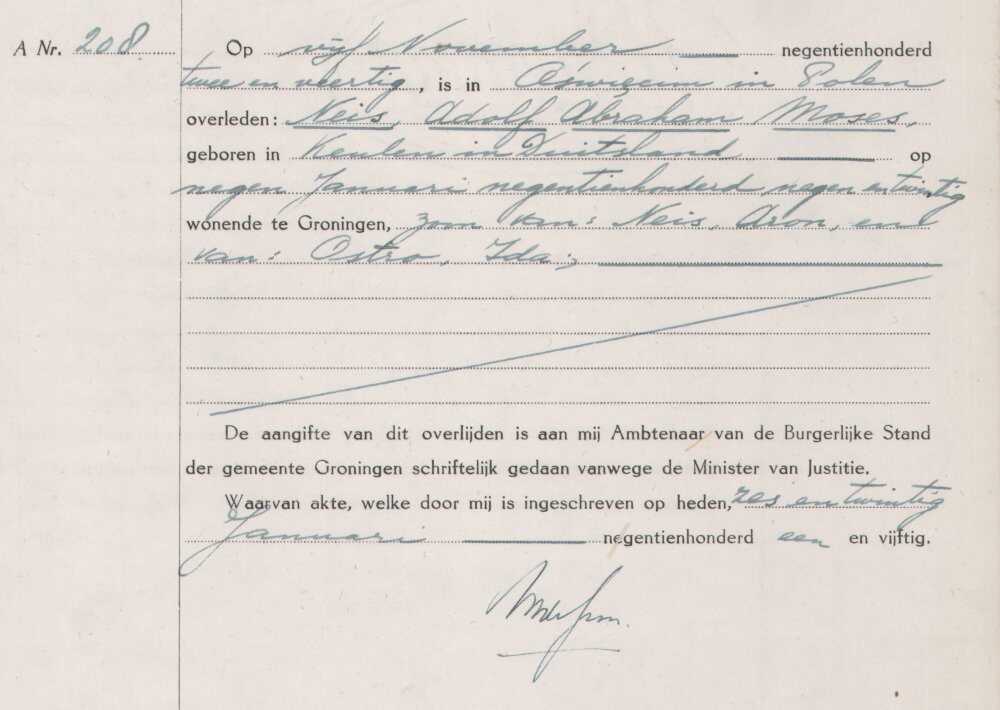 A Nr. 208
Op vijf November negentienhonderd
twee en veertig, is in Oświęcim in Polen
overleden: Neis, Adolf Abraham Moses,
geboren in Keulen in Duitsland op
negen Januari negentienhonderd negen en twintig
wonende te Groningen, zoon van: Neis, Aron, en
van: Ostro, Ida;
De aangifte van dit overlijden is aan mij Ambtenaar van de Burgerlijke Stand
der gemeente Groningen schriftelijk gedaan vanwege de Minister van Justitie.
Waarvan akte, welke door mij is ingeschreven op heden, zes en twintig
Januari negentienhonderd een en vijftig.